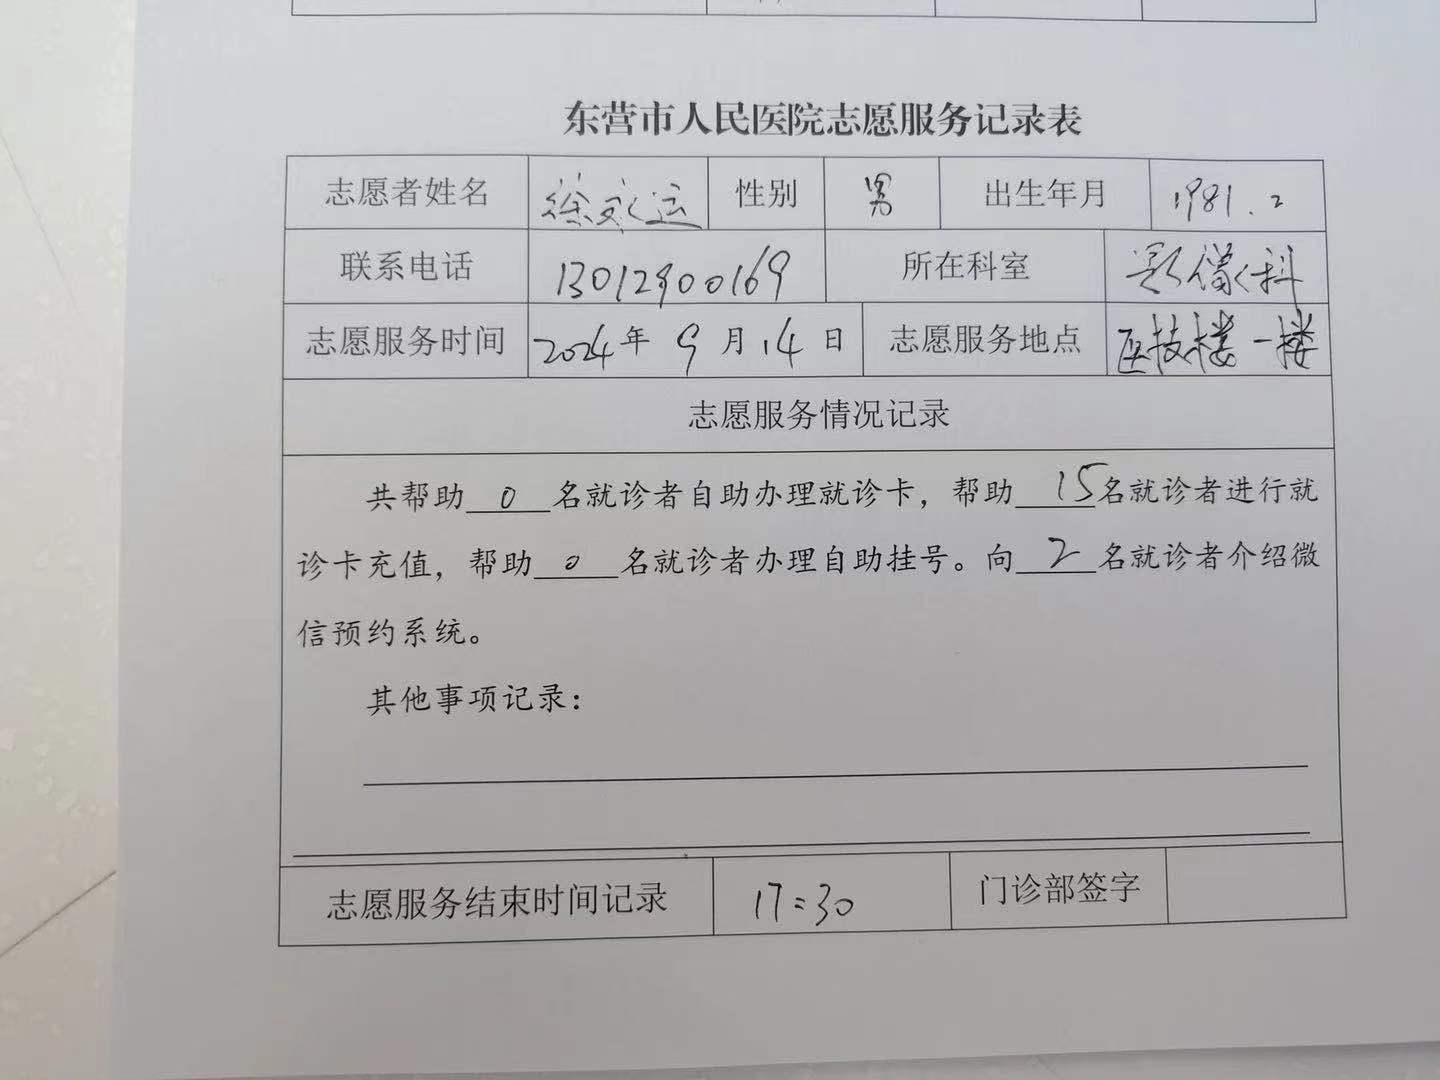 东营市人民医院志愿服务记录表
志愿者姓名 徐永运 性别 男 出生年月 1981.2
联系电话 13012900169 所在科室 影像科
志愿服务时间 2024年 9 月 14 日 志愿服务地点 医技楼一楼
志愿服务情况记录
共帮助 0 名就诊者自助办理就诊卡，帮助 15 名就诊者进行就
诊卡充值，帮助 0 名就诊者办理自助挂号。向 2 名就诊者介绍微
信预约系统。
其他事项记录：
志愿服务结束时间记录 17:30 门诊部签字